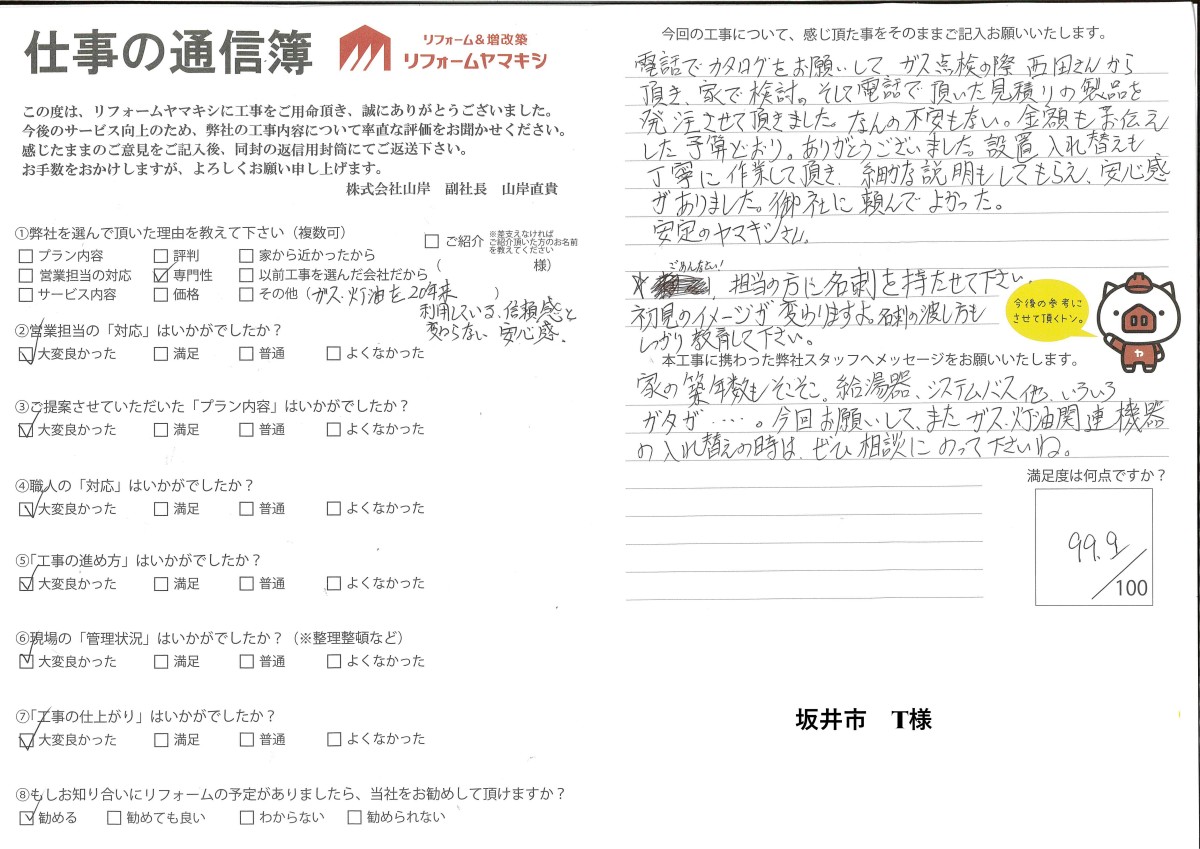 仕事の通信簿
リフォーム&増改築
リフォームヤマキシ
この度は、リフォームヤマキシに工事をご用命頂き、誠にありがとうございました。
今後のサービス向上のため、弊社の工事内容について率直な評価をお聞かせください。
感じたままのご意見をご記入後、同封の返信用封筒にてご返送下さい。
お手数をおかけしますが、よろしくお願い申し上げます。
株式会社山岸 副社長 山岸直貴
①弊社を選んで頂いた理由を教えて下さい（複数可）
□ プラン内容 □ 評判 □ 家から近かったから
□ 営業担当の対応 ☑ 専門性 □ 以前工事を選んだ会社だから
□ サービス内容 □ 価格 □ その他（ガス.灯油を20年来 ）
利用している、信頼感と
変わらない 安心感.
□ ご紹介 ※差支えなければ
ご紹介頂いた方のお名前
を教えてください
（ 様）
②営業担当の「対応」はいかがでしたか？
☑ 大変良かった □ 満足 □ 普通 □ よくなかった
③ご提案させていただいた「プラン内容」はいかがでしたか？
☑ 大変良かった □ 満足 □ 普通 □ よくなかった
④職人の「対応」はいかがでしたか？
☑ 大変良かった □ 満足 □ 普通 □ よくなかった
⑤「工事の進め方」はいかがでしたか？
☑ 大変良かった □ 満足 □ 普通 □ よくなかった
⑥現場の「管理状況」はいかがでしたか？（※整理整頓など）
☑ 大変良かった □ 満足 □ 普通 □ よくなかった
⑦「工事の仕上がり」はいかがでしたか？
☑ 大変良かった □ 満足 □ 普通 □ よくなかった
⑧もしお知り合いにリフォームの予定がありましたら、当社をお勧めして頂けますか？
☑ 勧める □ 勧めても良い □ わからない □ 勧められない
今回の工事について、感じ頂た事をそのままご記入お願いいたします。
電話でカタログをお願いして ガス点検の際 西田さんから
頂き、家で検討。そして電話で頂いた見積りの製品を
発注させて頂きました。なんの不安もない。金額もお伝え
した予算どおり。ありがとうございました。設置 入れ替えも
丁寧に作業して頂き、細かな説明もしてもらえ、安心感
がありました。御社に頼んでよかった。
安定のヤマキシさん。
ごめんなさい!
担当の方に名刺を持たせて下さい.
初見のイメージが変わりますよ。名刺の渡し方も
しっかり教育して下さい。
今後の参考に
させて頂くトン。
ヤ
本工事に携わった弊社スタッフへメッセージをお願いいたします。
家の築年数もそこそこ。給湯器、システムバス他、いろいろ
ガタが……。今回お願いして、また ガス.灯油関連機器
の入れ替えの時は、ぜひ相談にのって下さいね。
満足度は何点ですか？
99.9
/100
坂井市 T様